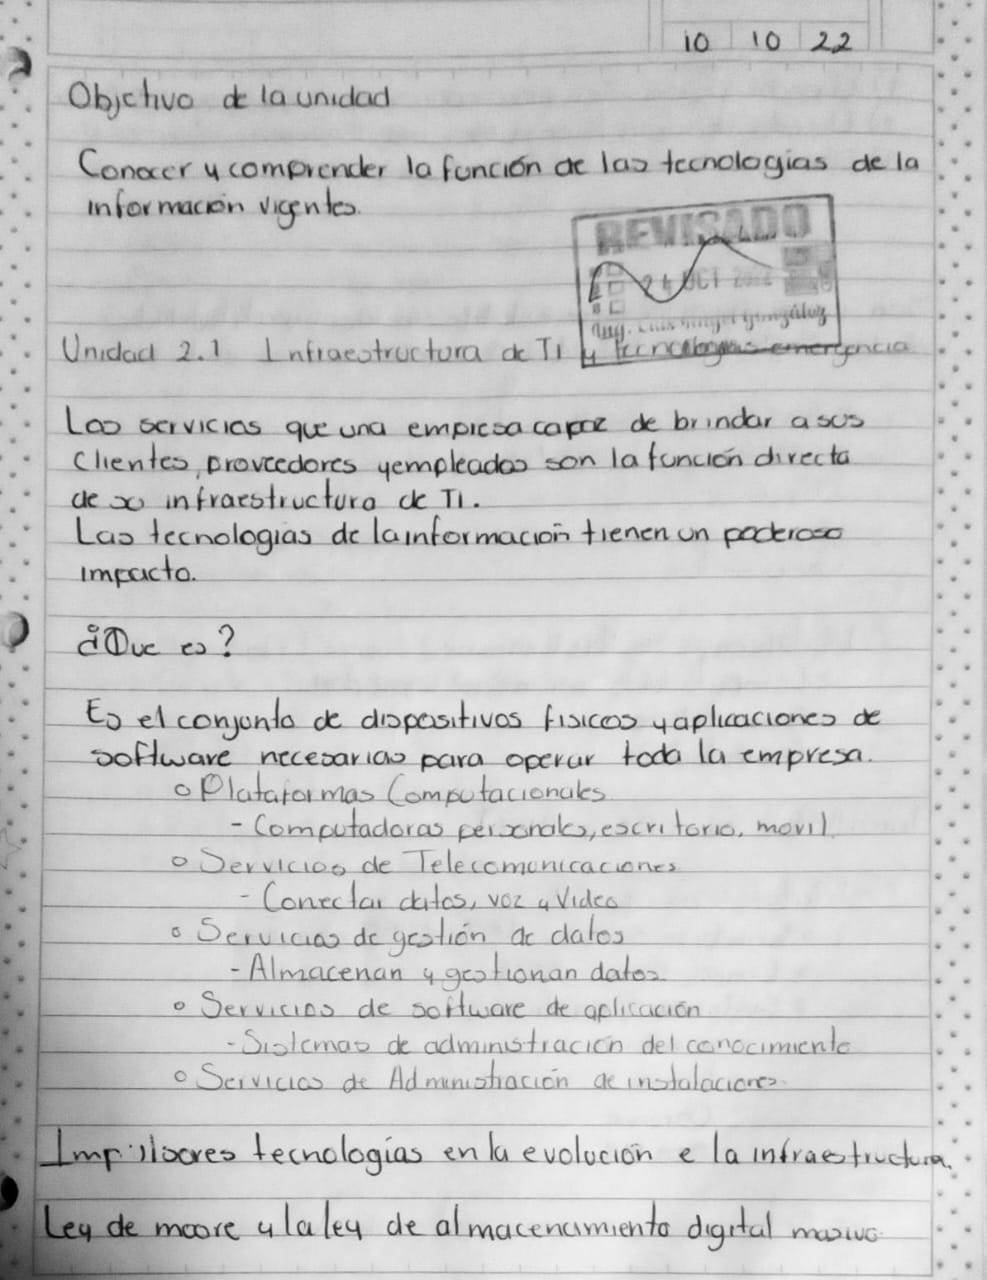 10 10 22
Objetivo de la unidad
Conocer y comprender la función de las tecnologías de la
información vigentes.
REVISADO
24 OCT 2022
Ing. Luis Angel González
Unidad 2.1 Infraestructura de TI y tecnologias emergencia
Los servicios que una empresa capaz de brindar a sus
Clientes, proveedores y empleados son la función directa
de su infraestructura de TI.
Las tecnologias de la información tienen un poderoso
impacto.
¿Que es?
Es el conjunto de dispositivos fisicos y aplicaciones de
software necesarias para operar toda la empresa.
o Plataformas Computacionales
- Computadoras personales, escritorio, movil
o Servicios de Telecomunicaciones
- Conectar datos, voz y Video
o Servicios de gestión de datos
- Almacenan y gestionan datos
o Servicios de software de aplicación
- Sistemas de administración del conocimiento
o Servicios de Administración de instalaciones
Impulsores tecnologías en la evolución e la infraestructura.
Ley de moore y la ley de almacenamiento digital masivo